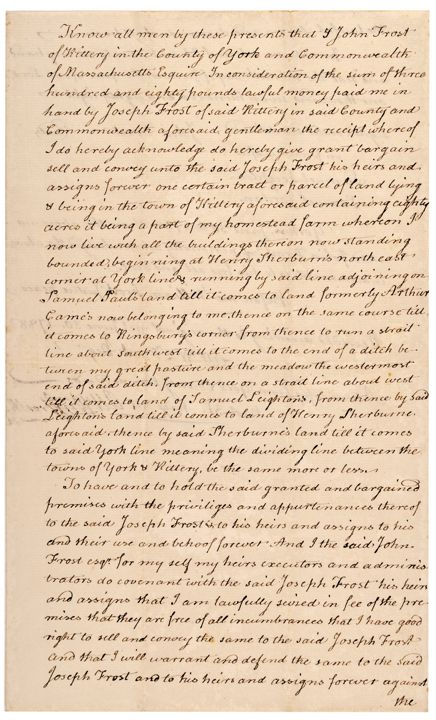 Know all men by these presents that I John Frost
of Kittery in the County of York and Commonwealth
of Massachusetts Esquire In consideration of the sum of three
hundred and eighty pounds lawful money paid me in
hand by Joseph Frost of said Kittery in said County and
Commonwealth aforesaid gentleman the receipt whereof
I do hereby acknowledge do hereby give grant bargain
sell and convey unto the said Joseph Frost his heirs and
assigns forever one certain tract or parcel of land lying
& being in the town of Kittery aforesaid containing eighty
acres it being a part of my homestead farm whereon I
now live with all the buildings thereon now standing
bounded, beginning at Henry Sherburn's north east
corner at York line & running by said line adjoining on
Samuel Pauls land till it comes to land formerly Arthur
Came's now belonging to me, thence on the same course till
it comes to Kingsbury's corner from thence to run a strait
line about southwest till it comes to the end of a ditch be-
tween my great pasture and the meadow the westermost
end of said ditch, from thence on a strait line about west
till it comes to land of Samuel Leighton's, from thence by said
Leighton's land till it comes to land of Henry Sherburne
aforesaid, thence by said Sherburne's land till it comes
to said York line meaning the dividing line between the
towns of York & Kittery, be the same more or less.
To have and to hold the said granted and bargained
premises with the priviliges and appurtenances thereof
to the said Joseph Frost & to his heirs and assigns to his
and their use and behoof forever. And I the said John
Frost esqr. for my self my heirs executors and adminis-
trators do covenant with the said Joseph Frost his heirs
and assigns that I am lawfully seised in fee of the pre-
mises that they are free of all incumbrances that I have good
right to sell and convey the same to the said Joseph Frost
and that I will warrant and defend the same to the said
Joseph Frost and to his heirs and assigns forever against
the